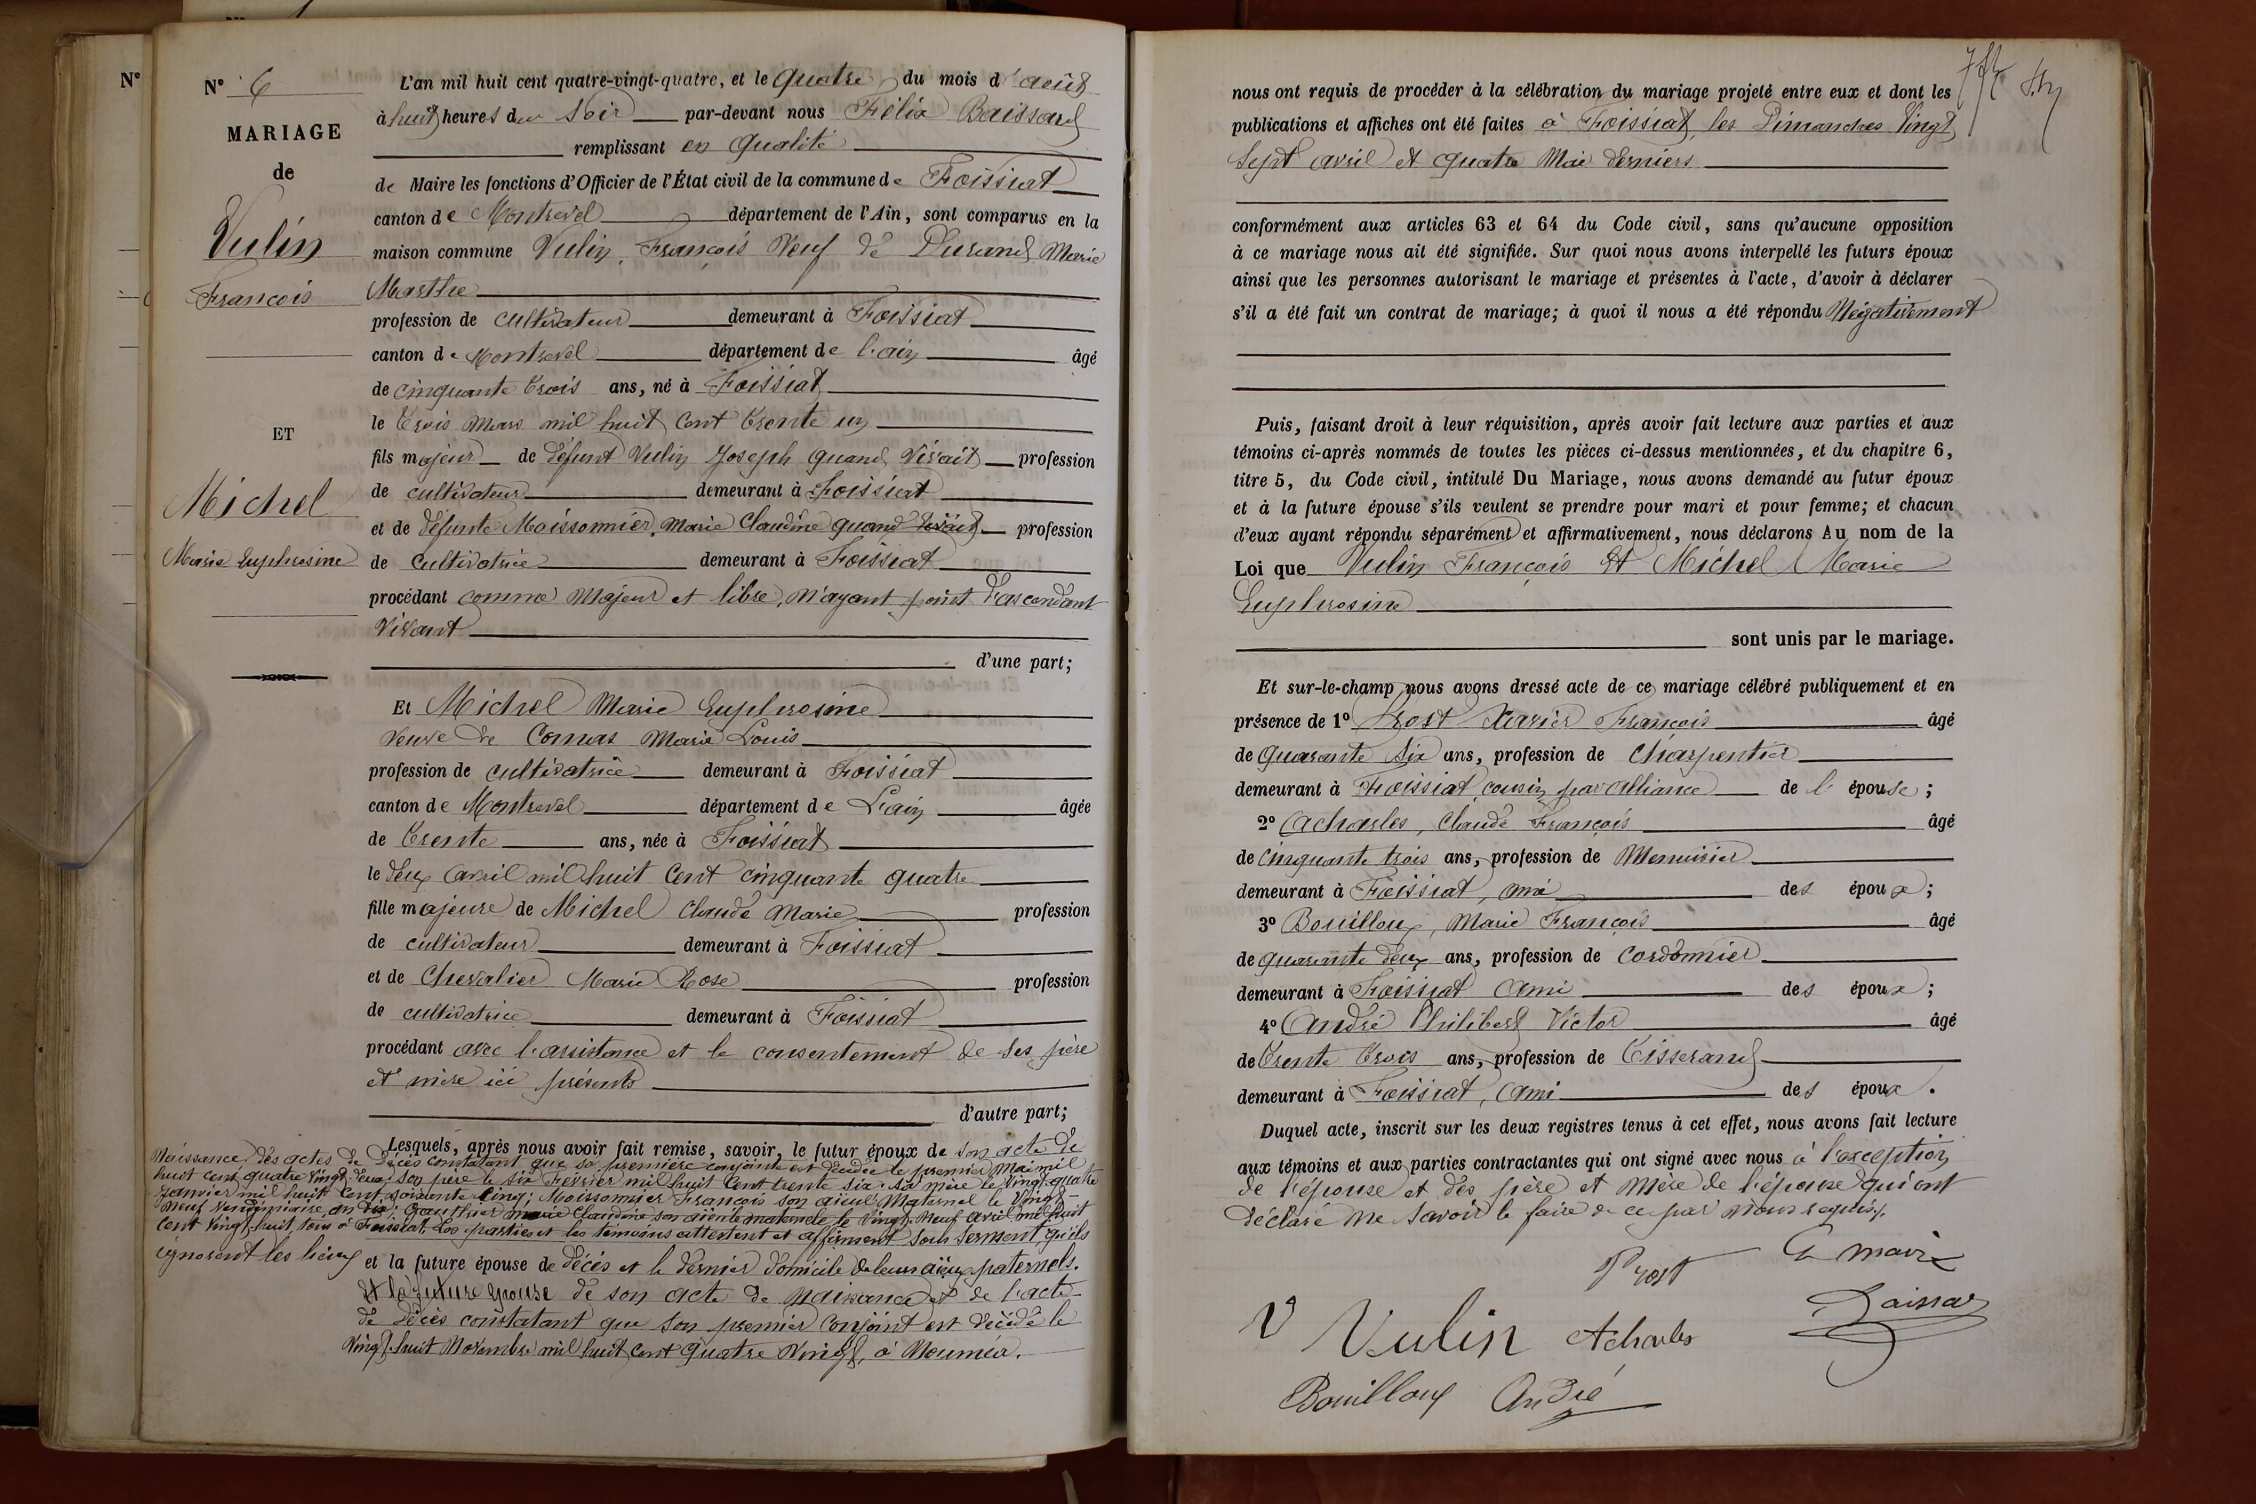 N°
N° 6
MARIAGE
de
Vulin
François
ET
Michel
Marie Euphrosine
L'an mil huit cent quatre-vingt-quatre, et le quatre du mois d'août
à huit heures du soir par-devant nous Félix Baissard
remplissant en qualité
de Maire les fonctions d'Officier de l'État civil de la commune de Foissiat
canton de Montrevel département de l'Ain, sont comparus en la
maison commune Vulin, François Veuf de Durand Marie
Marthe
profession de cultivateur demeurant à Foissiat
canton de Montrevel département de l'ain âgé
de cinquante trois ans, né à Foissiat
le trois mars mil huit cent trente un
fils majeur de défunt Vulin Joseph quand vivait profession
de cultivateur demeurant à Foissiat
et de défunte Moissonnier, Marie Claudine quand vivait profession
de cultivatrice demeurant à Foissiat
procédant comme majeur et libre, n'ayant point d'ascendant
vivant
d'une part;
Et Michel Marie Euphrosine
veuve de Comas Marie Louis
profession de cultivatrice demeurant à Foissiat
canton de Montrevel département de L'ain âgée
de trente ans, née à Foissiat
le deux avril mil huit cent cinquante quatre
fille majeure de Michel Claude Marie profession
de cultivateur demeurant à Foissiat
et de Chevalier Marie Rose profession
de cultivatrice demeurant à Foissiat
procédant avec l'assistance et le consentement de ses père
et mère ici présents
d'autre part;
Lesquels, après nous avoir fait remise, savoir, le futur époux de son acte de
Naissance, des actes de décès constatant que sa première conjointe est décédée le premier Mai mil
huit cent quatre vingt deux; son père le six Février mil huit cent trente six; sa mère le vingt quatre
janvier mil huit cent soixante cinq; Moissonnier François son aïeul Maternel le vingt-
neuf vendémiaire an dix; Gauthier Marie Claudine son aïeule maternelle le vingt neuf avril mil huit
cent vingt huit tous à Foissiat. Les parties et les témoins attestent et affirment sous serment qu'ils
ignorent les lieux et la future épouse de décès et le dernier domicile de leurs aïeux paternels.
Et la future épouse de son acte de naissance et de l'acte
de décès constatant que son premier conjoint est décédé le
vingt-huit Novembre mil huit cent quatre vingt, à Nouméa.
nous ont requis de procéder à la célébration du mariage projeté entre eux et dont les
publications et affiches ont été faites à Foissiat, les Dimanches vingt
sept avril et quatre Mai derniers
conformément aux articles 63 et 64 du Code civil, sans qu'aucune opposition
à ce mariage nous ait été signifiée. Sur quoi nous avons interpellé les futurs époux
ainsi que les personnes autorisant le mariage et présentes à l'acte, d'avoir à déclarer
s'il a été fait un contrat de mariage; à quoi il nous a été répondu Négativement
Puis, faisant droit à leur réquisition, après avoir fait lecture aux parties et aux
témoins ci-après nommés de toutes les pièces ci-dessus mentionnées, et du chapitre 6,
titre 5, du Code civil, intitulé Du Mariage, nous avons demandé au futur époux
et à la future épouse s'ils veulent se prendre pour mari et pour femme; et chacun
d'eux ayant répondu séparément et affirmativement, nous déclarons Au nom de la
Loi que Vulin François et Michel Marie
Euphrosine
sont unis par le mariage.
Et sur-le-champ nous avons dressé acte de ce mariage célébré publiquement et en
présence de 1° Prost Xavier François âgé
de quarante six ans, profession de charpentier
demeurant à Foissiat, cousin par alliance de l'épouse;
2° Acharles, Claude François âgé
de cinquante trois ans, profession de Menuisier
demeurant à Foissiat, ami des époux;
3° Bouilloux, Marie François âgé
de quarante deux ans, profession de cordonnier
demeurant à Foissiat ami des époux;
4° André Philibert Victor âgé
de trente trois ans, profession de tisserand
demeurant à Foissiat, ami des époux.
Duquel acte, inscrit sur les deux registres tenus à cet effet, nous avons fait lecture
aux témoins et aux parties contractantes qui ont signé avec nous à l'exception
de l'épouse et des père et mère de l'épouse qui ont
déclaré ne savoir le faire de ce par nous requis.
Prost Le maire
V Vulin Acharles Baissard
Bouilloux André